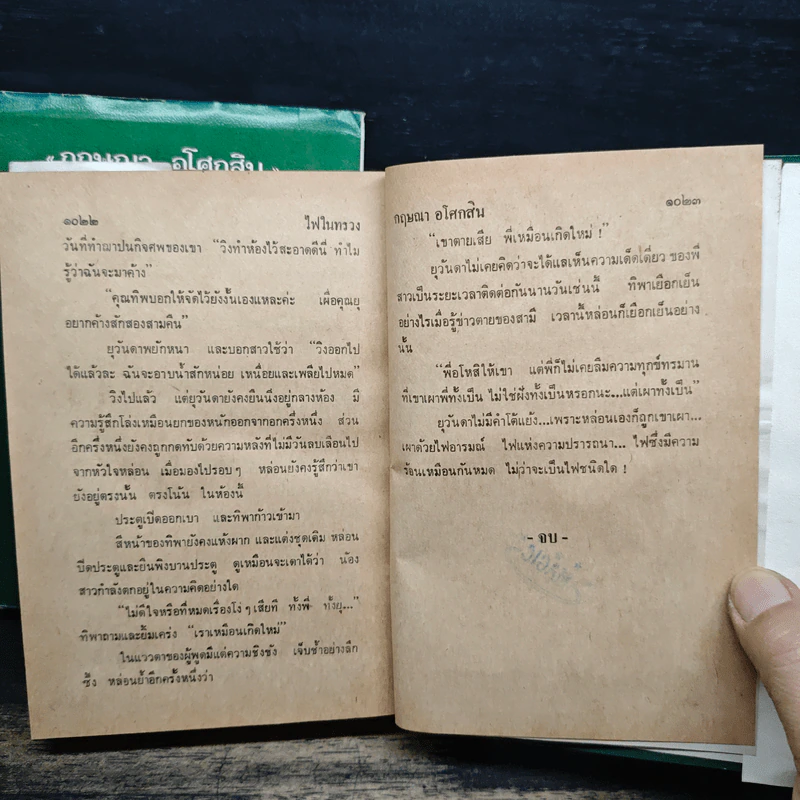 กฤษณา อโศกสิน
๑๐๒๒ ไฟในทรวง
วันที่ทำฌาปนกิจศพของเขา “วิงทำห้องไว้สะอาดดีนี่ ทำไม
รู้ว่าฉันจะมาค้าง”
“คุณทิพบอกให้จัดไว้ยังงั้นเองแหละค่ะ เผื่อคุณยุ
อยากค้างสักสองสามคืน”
ยุวันดาพยักหนา และบอกสาวใช้ว่า “วิงออกไป
ได้แล้วละ ฉันจะอาบน้ำสักหน่อย เหนื่อยและเพลียไปหมด”
วิงไปแล้ว แต่ยุวันดายังคงยืนนิ่งอยู่กลางห้อง มี
ความรู้สึกโล่งเหมือนยกของหนักออกจากอกครึ่งหนึ่ง ส่วน
อีกครึ่งหนึ่งยังคงถูกกดทับด้วยความหลังที่ไม่มีวันลบเลือนไป
จากหัวใจหล่อน เมื่อมองไปรอบๆ หล่อนยังคงรู้สึกว่าเขา
ยังอยู่ตรงนั้น ตรงโน้น ในห้องนี้
ประตูเปิดออกเบา และทิพาก้าวเข้ามา
สีหน้าของทิพายังคงแห้งผาก และแต่งชุดเดิม หล่อน
ปิดประตูและยืนพิงบานประตู ดูเหมือนจะเดาได้ว่า น้อง
สาวกำลังตกอยู่ในความคิดอย่างใด
“ไม่ดีใจหรือที่หมดเรื่องโง่ๆ เสียที ทั้งพี่ ทั้งยุ...”
ทิพาถามและยิ้มเคร่ง “เราเหมือนเกิดใหม่”
ในแววตาของผู้พูดมีแต่ความชิงชัง เจ็บช้ำอย่างลึก
ซึ้ง หล่อนย้ำอีกครั้งหนึ่งว่า
กฤษณา อโศกสิน ๑๐๒๓
“เขาตายเสีย พี่เหมือนเกิดใหม่ !”
ยุวันดาไม่เคยคิดว่าจะได้แลเห็นความเด็ดเดี่ยว ของพี่
สาวเป็นระยะเวลาติดต่อกันนานวันเช่นนี้ ทิพาเยือกเย็น
อย่างไรเมื่อรู้ข่าวตายของสามี เวลานี้หล่อนก็เยือกเย็นอย่าง
นั้น
“พี่อโหสิให้เขา แต่พี่ก็ไม่เคยลืมความทุกข์ทรมาน
ที่เขาเผาพี่ทั้งเป็น ไม่ใช่ฝังทั้งเป็นหรอกนะ...แต่เผาทั้งเป็น”
ยุวันดาไม่มีคำโต้แย้ง...เพราะหล่อนเองก็ถูกเขาเผา...
เผาด้วยไฟอารมณ์ ไฟแห่งความปรารถนา... ไฟซึ่งมีความ
ร้อนเหมือนกันหมด ไม่ว่าจะเป็นไฟชนิดใด !
- จบ -